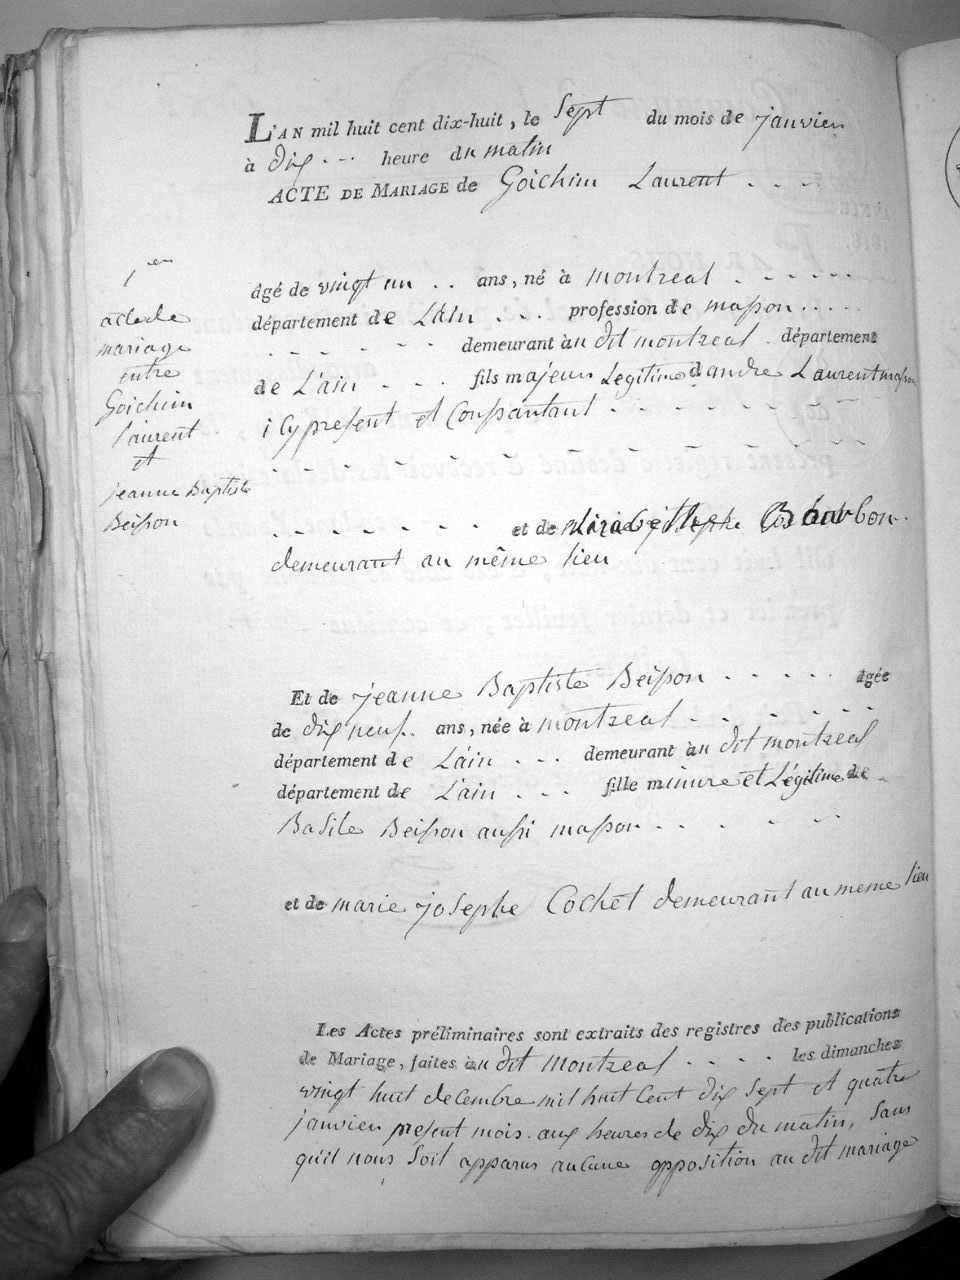 L'AN mil huit cent dix-huit, le Sept du mois de janvier
à dix heure du matin
ACTE DE MARIAGE de Goichim Laurent
1er
acte de
mariage
entre
Goichim
Laurent
et
jeanne Baptiste
Beisson
âgé de vingt un ans, né à montreal
département de L'ain profession de masson
demeurant au dit montreal département
de L'ain fils majeur Légitime d'andre Laurent masson
icy present et Conssantant
et de Elisabeth Bourbon
demeurant au même lieu
Et de jeanne Baptiste Beisson âgée
de dix neuf ans, née à montreal
département de L'ain demeurant au dit montreal
département de L'ain fille minure et Légitime de
Basile Beisson aussi masson
et de marie josephe Cochet demeurant au meme lieu
Les Actes préliminaires sont extraits des registres des publications
de Mariage, faites au dit Montreal les dimanches
vingt huit decembre mil huit Cent dix Sept et quatre
janvier present mois aux heures de dix du matin, Sans
qu'il nous Soit apparus aucune opposition au dit mariage